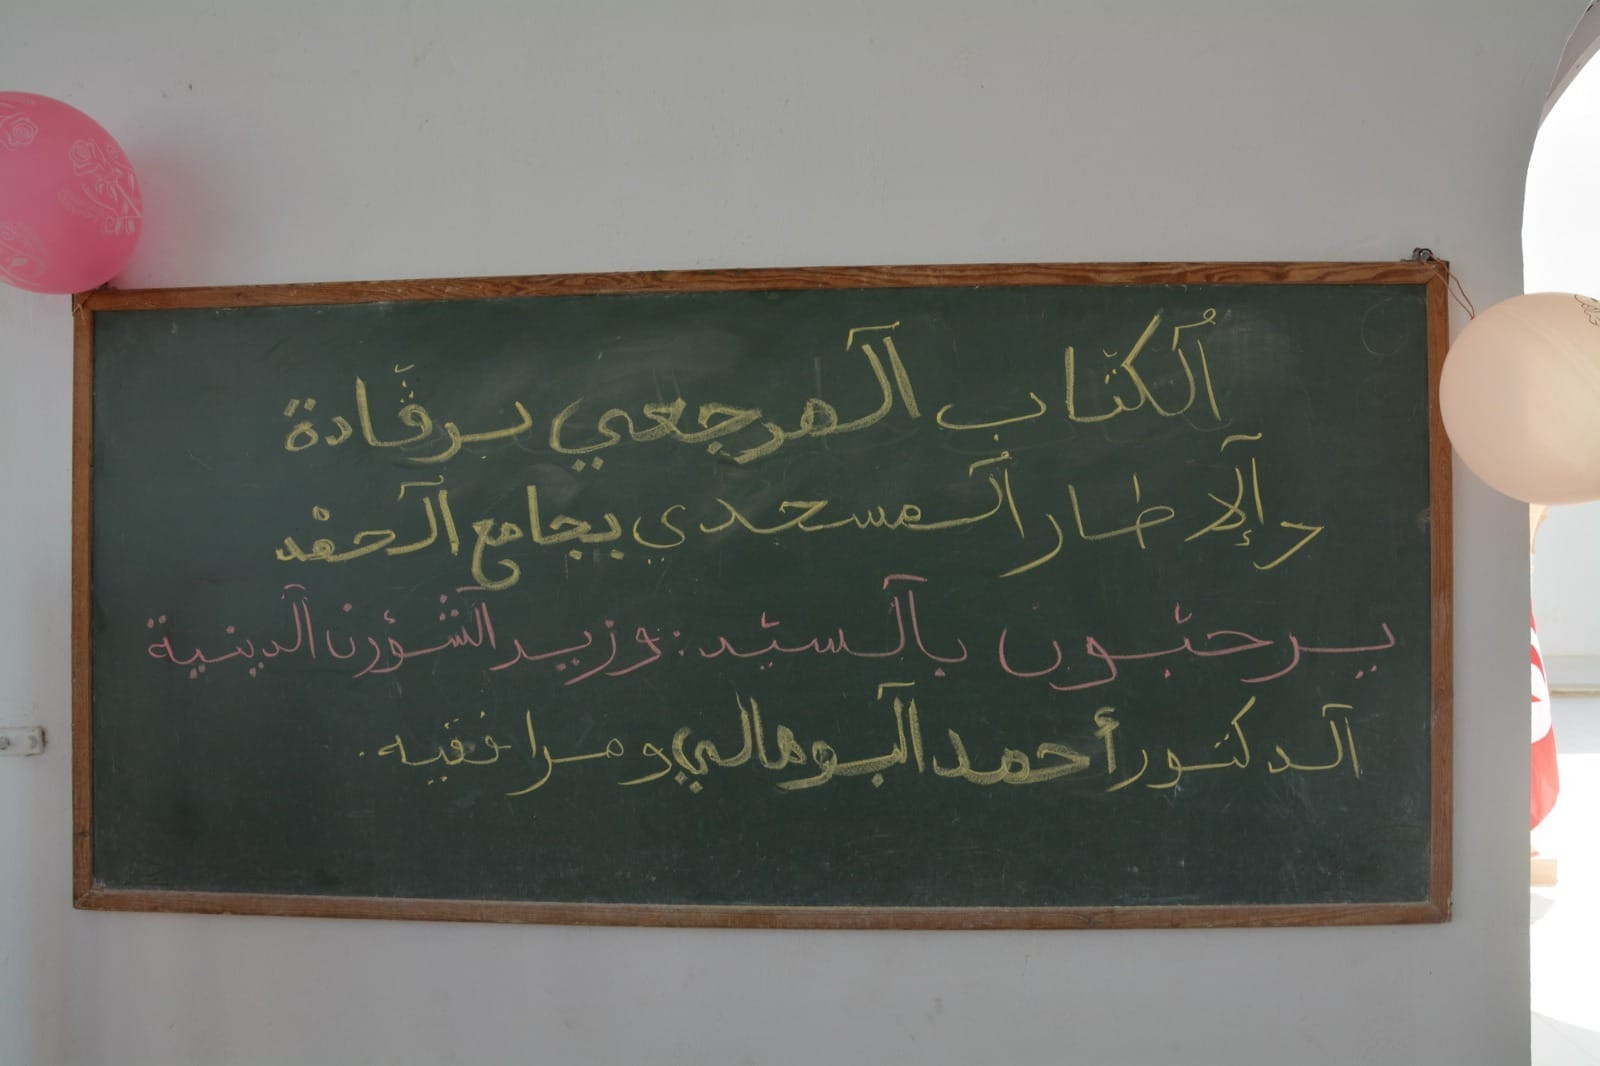 اُلكتّاب اٱلمرجعي برقّادة
و اٱلإطار اُلمسجدي بجامع اٱلحفد
يرحّبون باٱلسيّد: وزير الشّؤون اٱلدينية
اٱلدكتور أحمد اٱلبوهالي و مرافقيه.